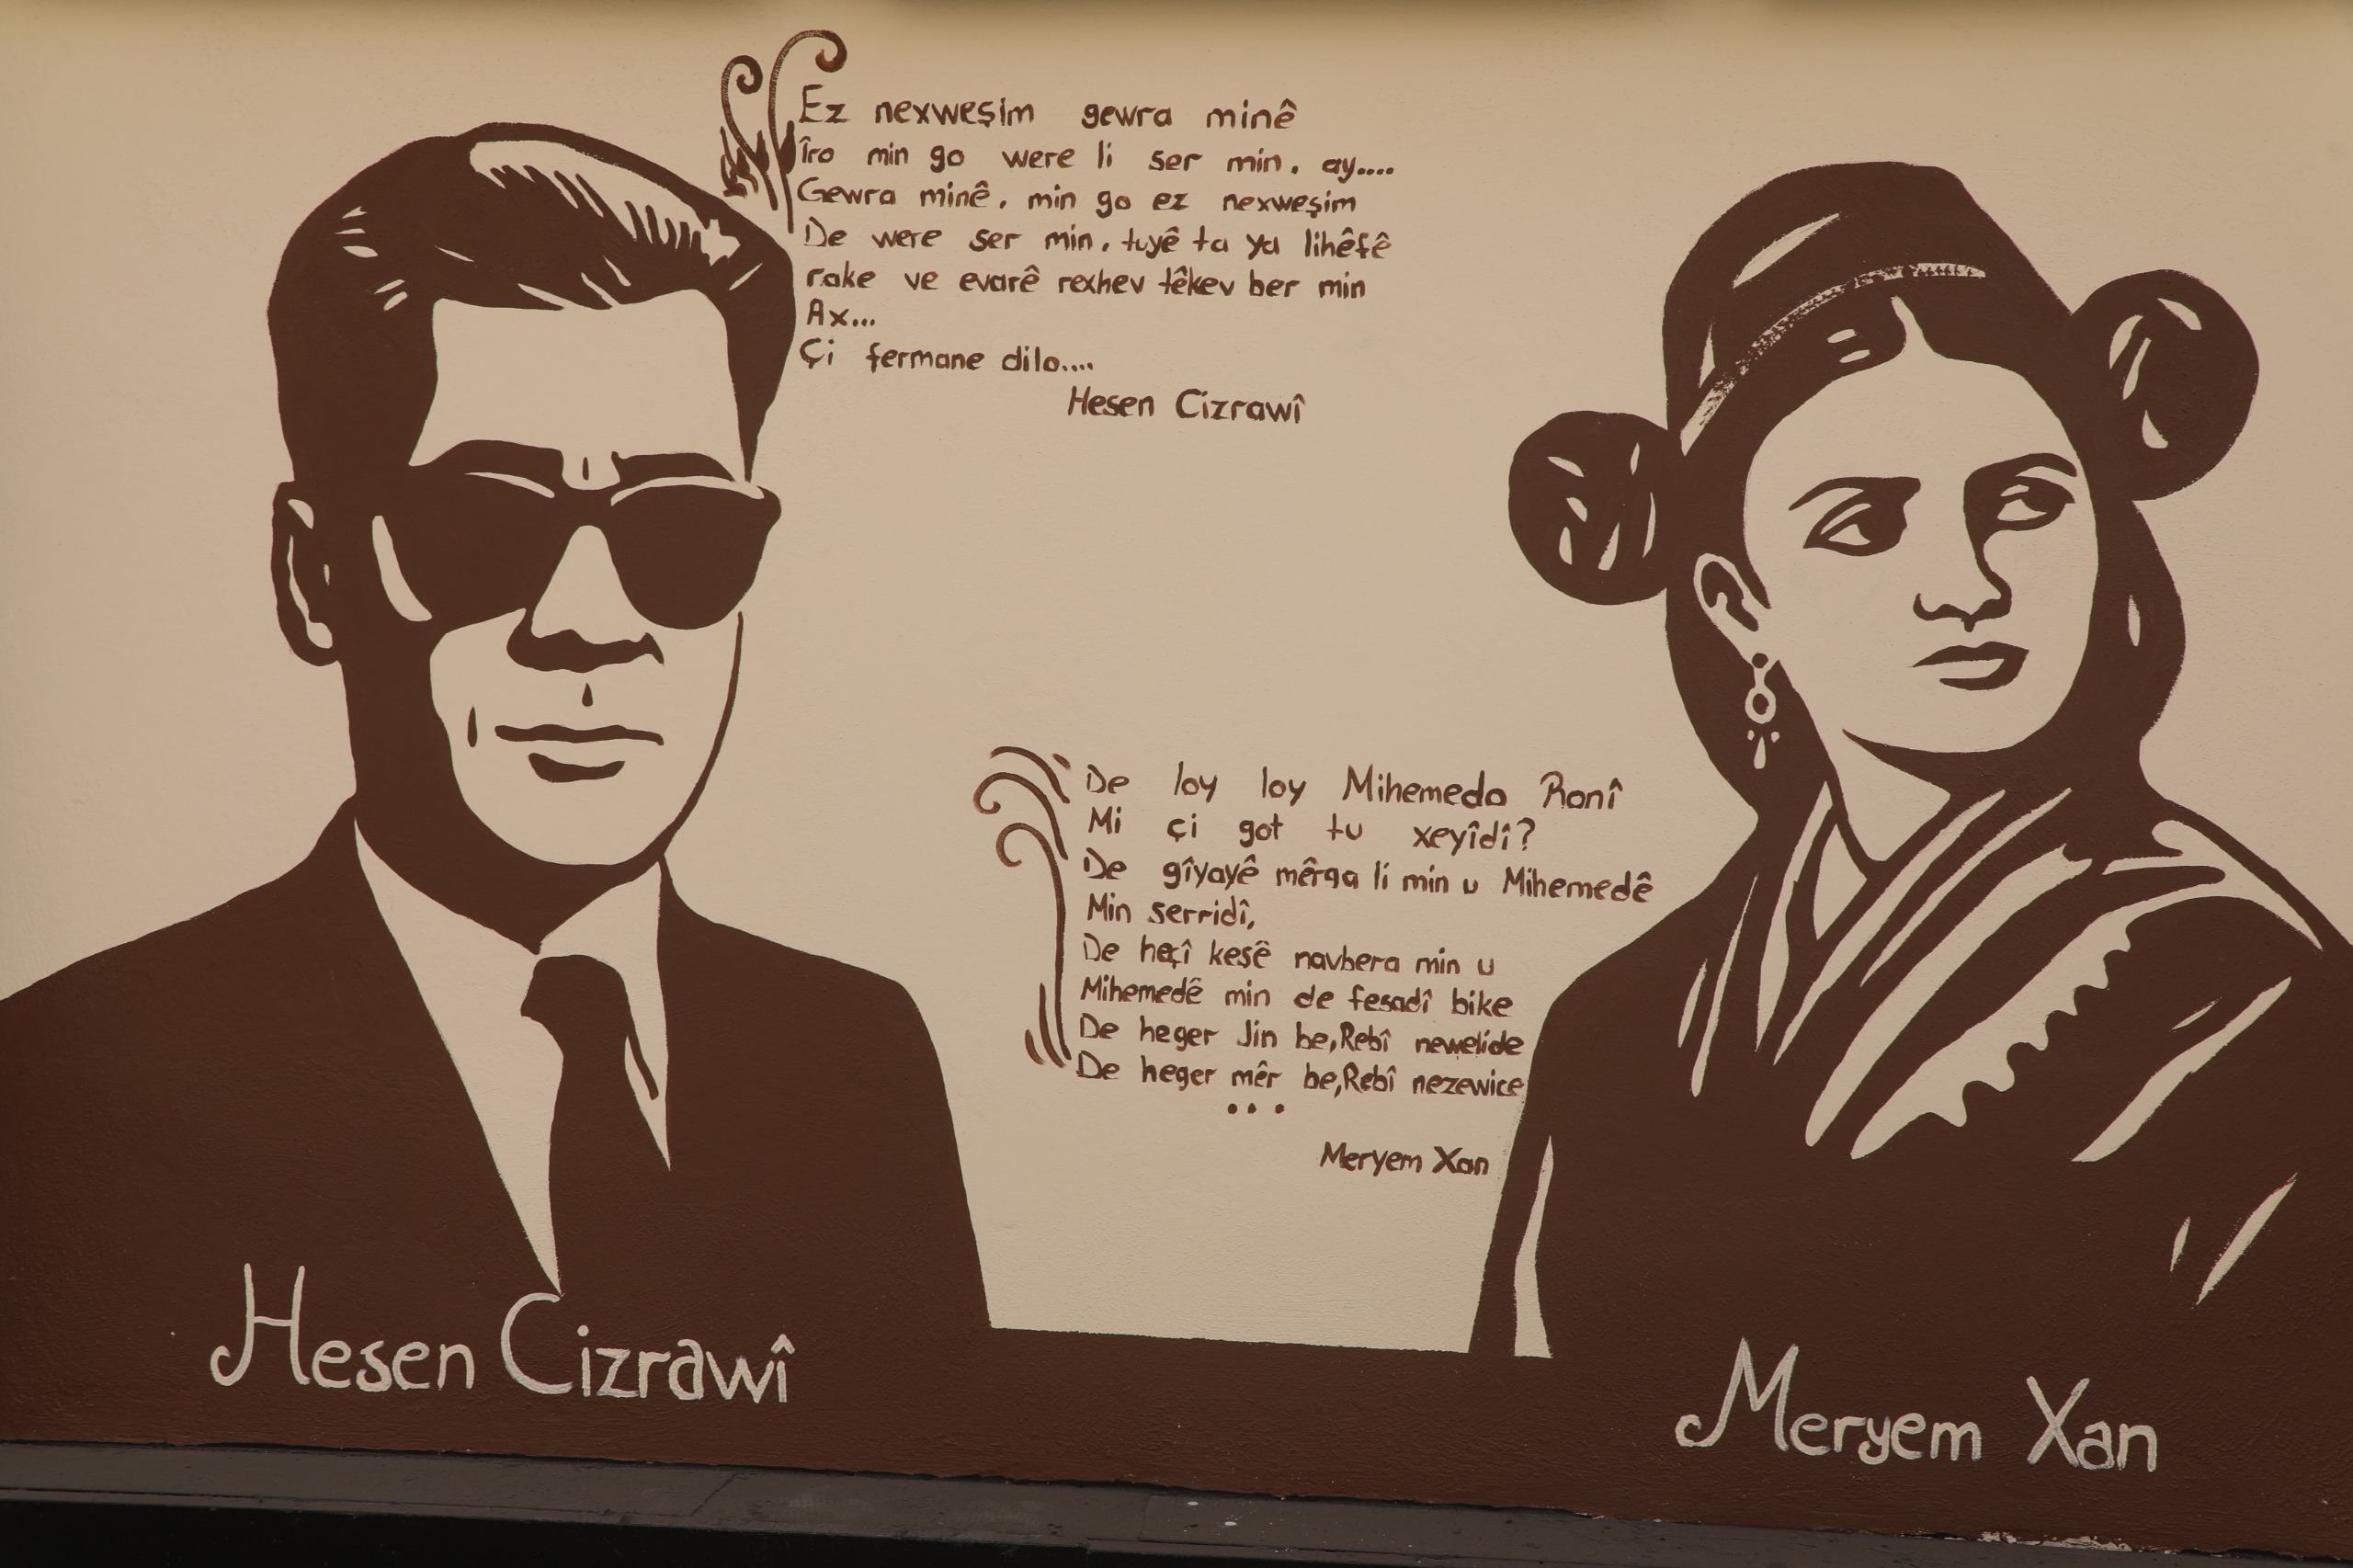 Ez nexweşim gewra minê
Îro min go were li ser min. ay....
Gewra minê. min go ez nexweşim
De were ser min. tuyê ta ya lihêfê
rake ve evarê rexhev têkev ber min
Ax...
Çi fermane dilo....
Hesen Cizrawî
De loy loy Mihemedo Ronî
Mi çi got tu xeyîdî?
De gîyayê mêrga li min u Mihemedê
Min serridî,
De heçî kesê navbera min u
Mihemedê min de fesadî bike
De heger Jin be,Rebî newelide
De heger mêr be,Rebî nezewice
...
Meryem Xan
Hesen Cizrawî
Meryem Xan